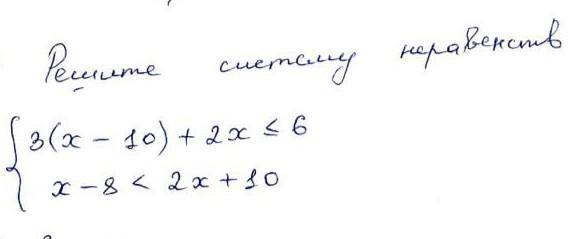 Решите систему неравенств
3(x - 10) + 2x ≤ 6
x - 8 < 2x + 10